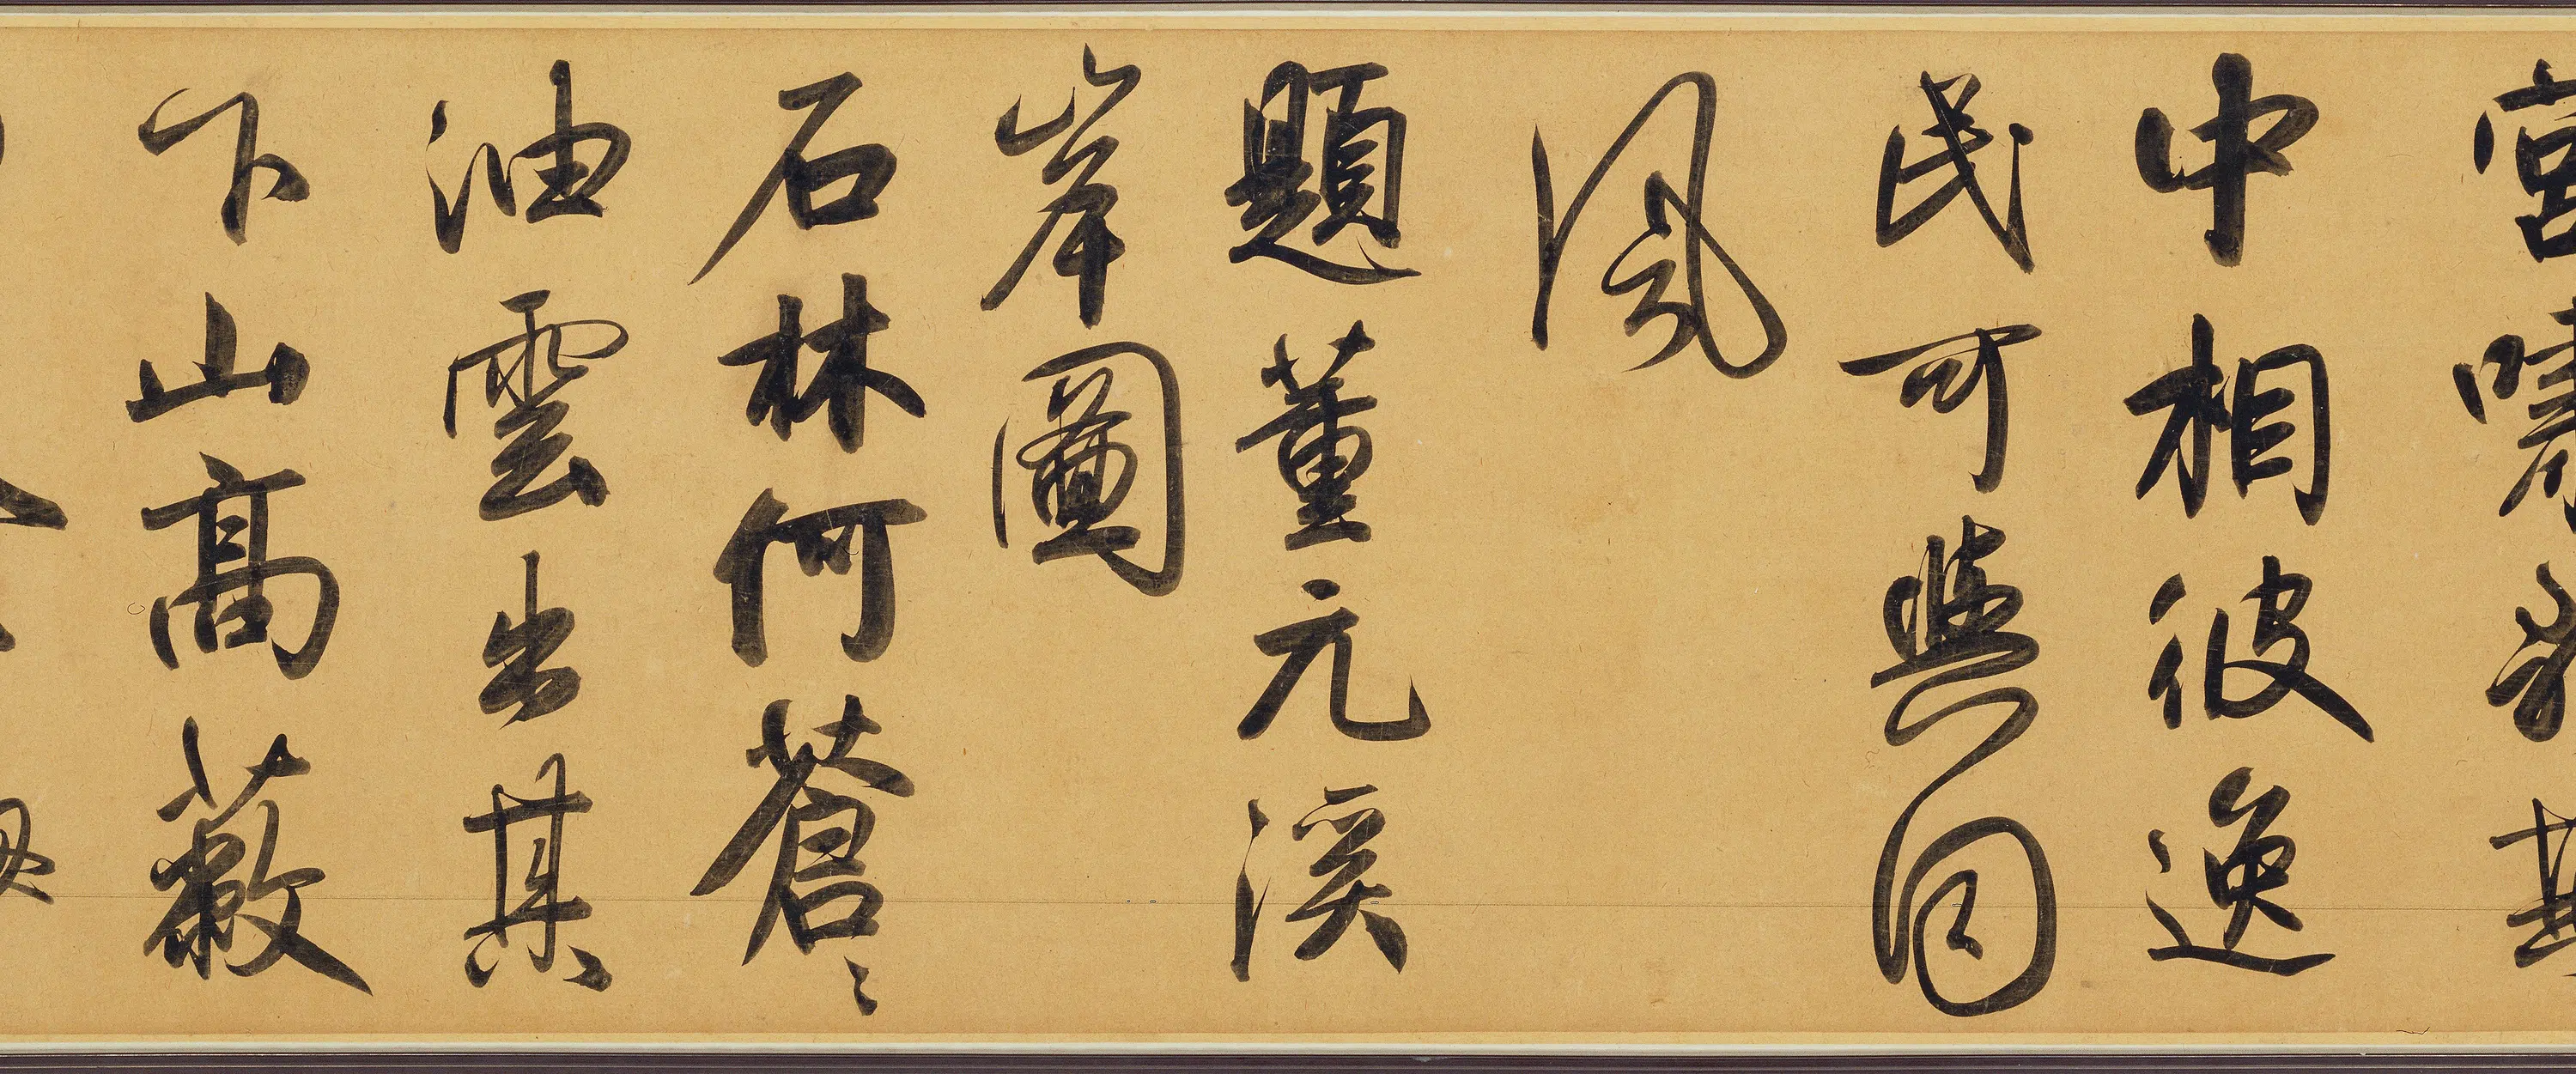 宮嘯
中相彼逸
民可與同
風
題董元溪
岸圖
石林何蒼々
油雲出其
下山高蔽